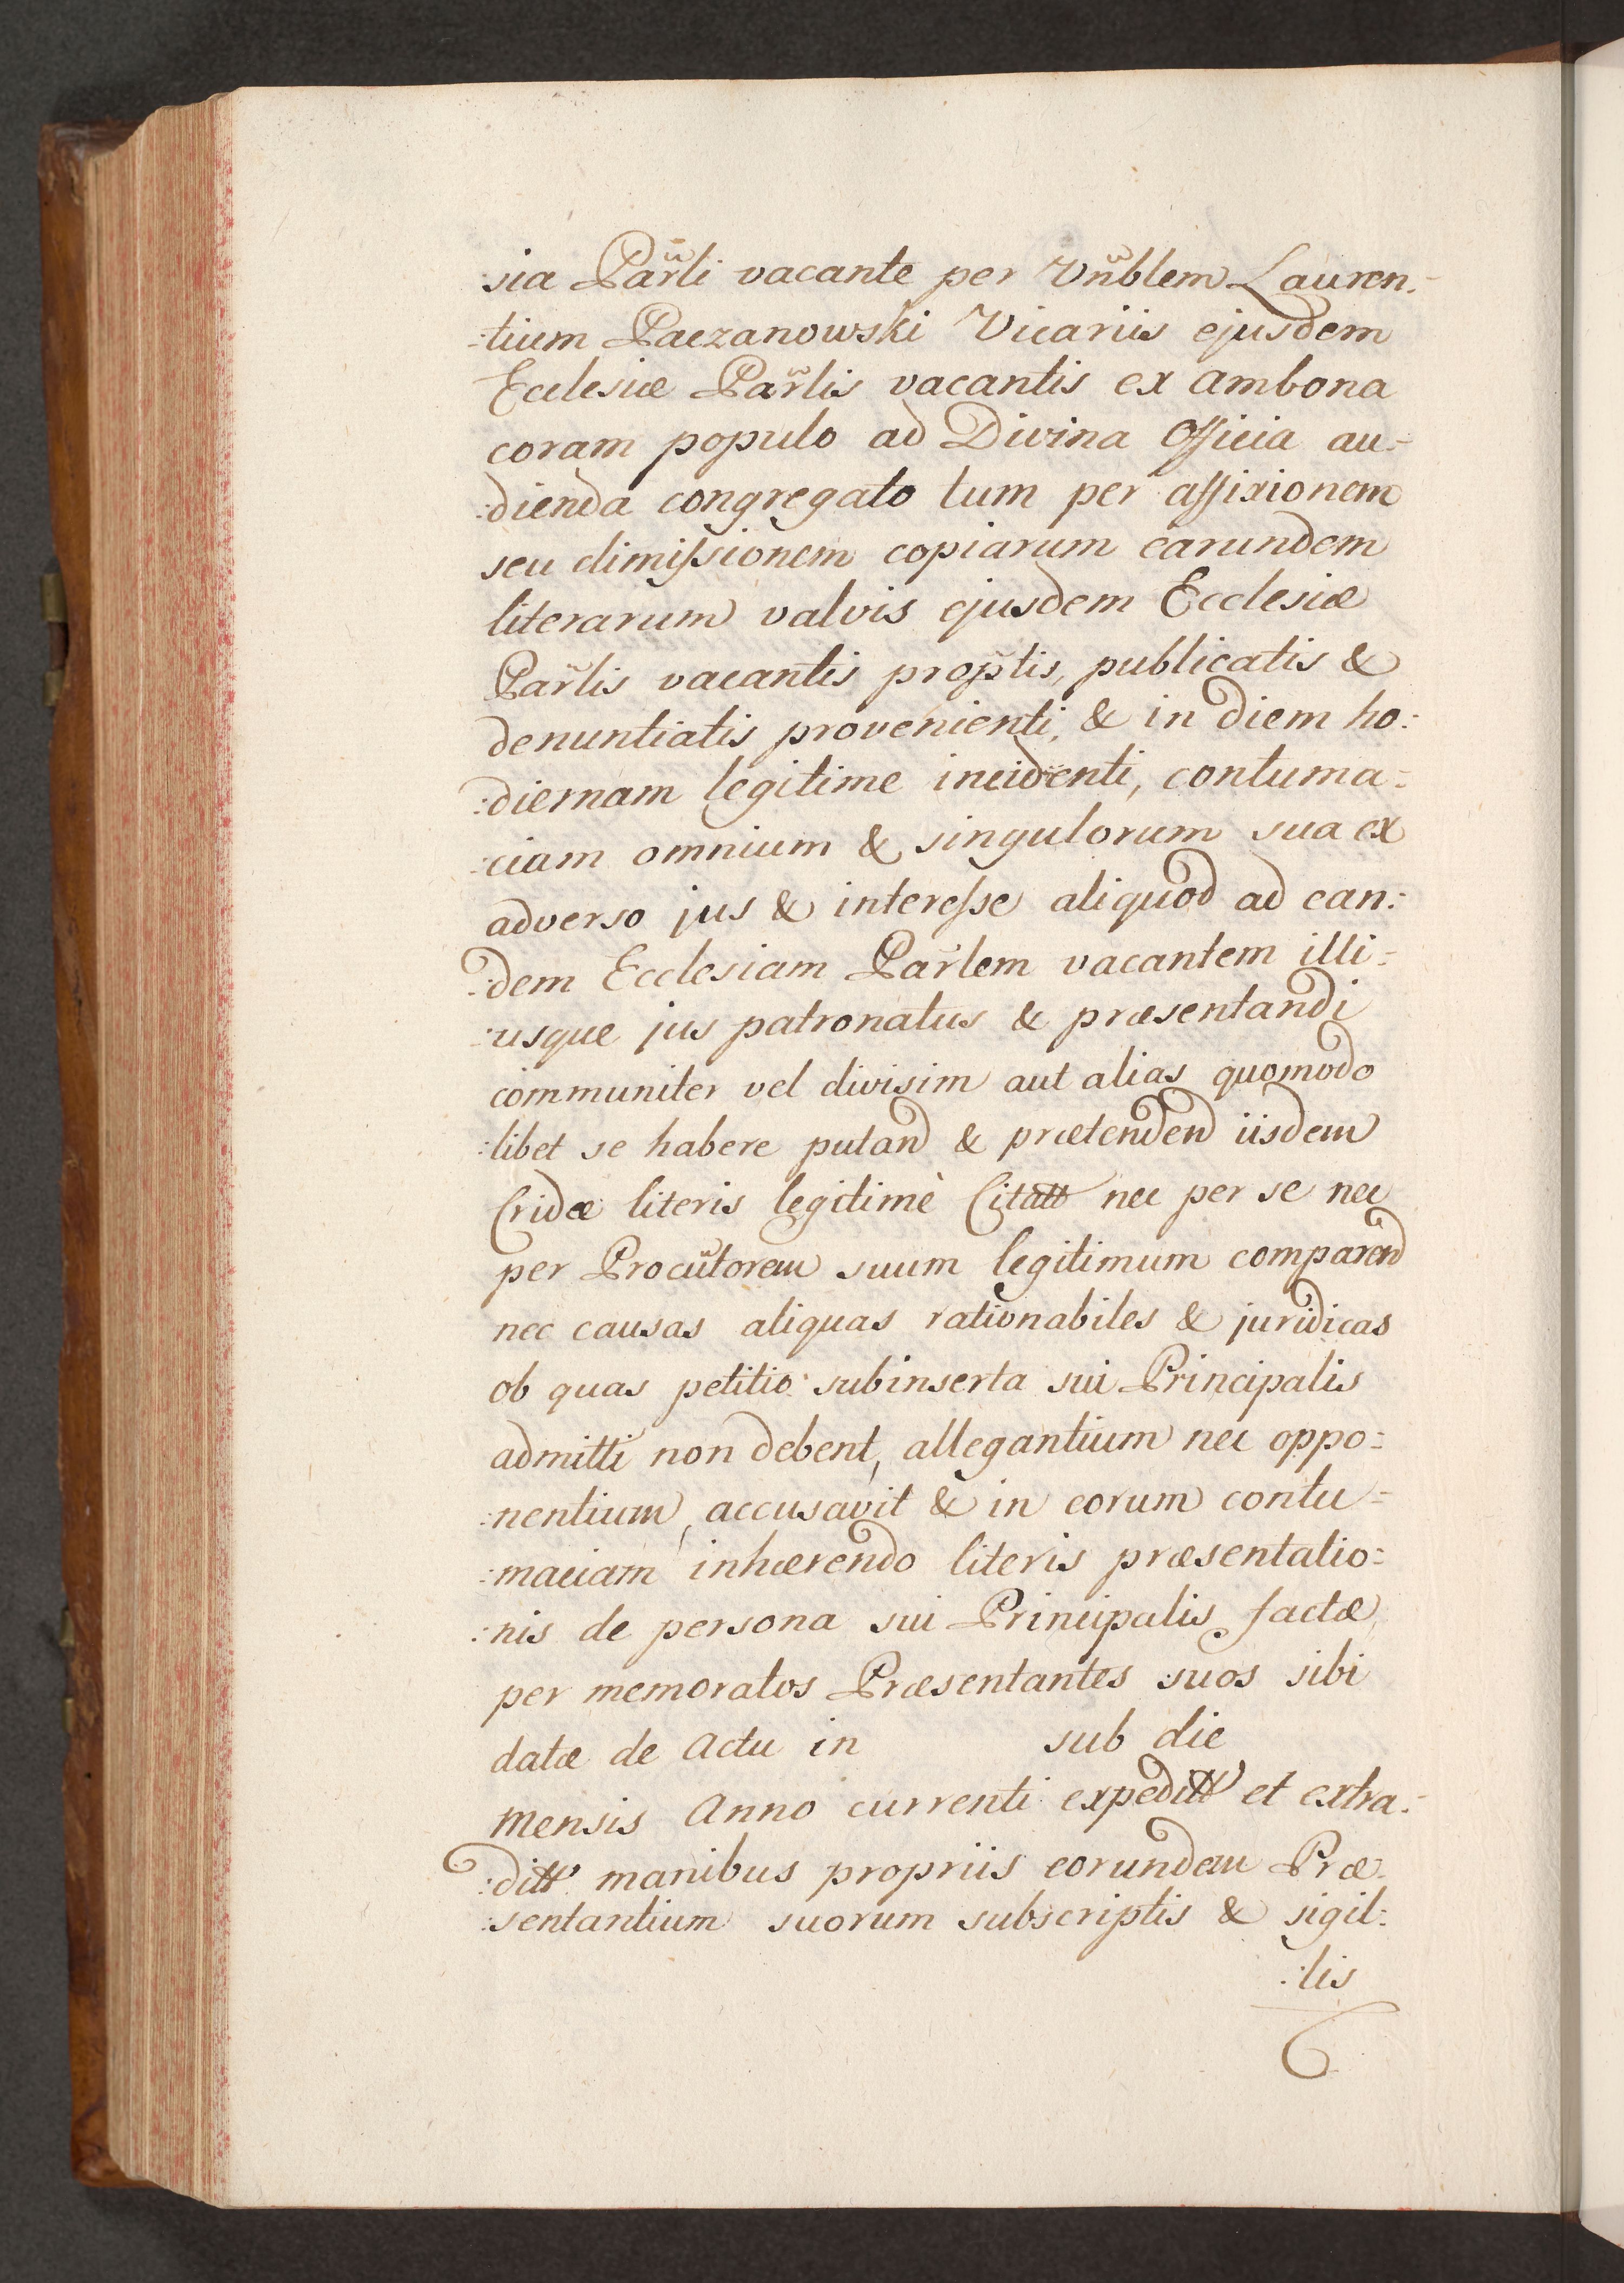 :sia Par̃li vacante per Vñblem Lauren:
:tium Paczanowski Vicariis ejusdem
Ecclesiæ Par̃lis vacantis ex ambona
coram populo ad Divina Officia au:
:dienda congregato tum per affixionem
seu dimiſsionem copiarum earundem
literarum valvis ejusdem Ecclesiæ
Par̃lis vacantis prop̃tis, publicatis &
denuntiatis provenienti, & in diem ho:
:diernam legitime incidenti, contuma:
:ciam omnium & singulorum sua ex
adverso jus & intereſse aliquod ad ean:
:dem Ecclesiam Par̃lem vacantem illi:
:usque jus patronatus & præsentandi
communiter vel divisim aut alias quomodo
:libet se habere putand & prætendend iisdem
Cridæ literis legitimè Citatt nec per se nec
per Procũtorem suum legitimum comparend
nec causas aliquas rationabiles & juridicas
ob quas petitio subinserta sui Principalis
admitti non debent, allegantium nec oppo:
:nentium, accusavit & in eorum contu:
:maciam inhærendo literis præsentatio:
:nis de persona sui Principalis factæ
per memoratos Præsentantes suos sibi
datæ de Actu in sub die
Mensis Anno currenti expeditt et extra:
:ditt manibus propriis eorundem Præ:
:sentantium suorum subscriptis & sigil:
:lis